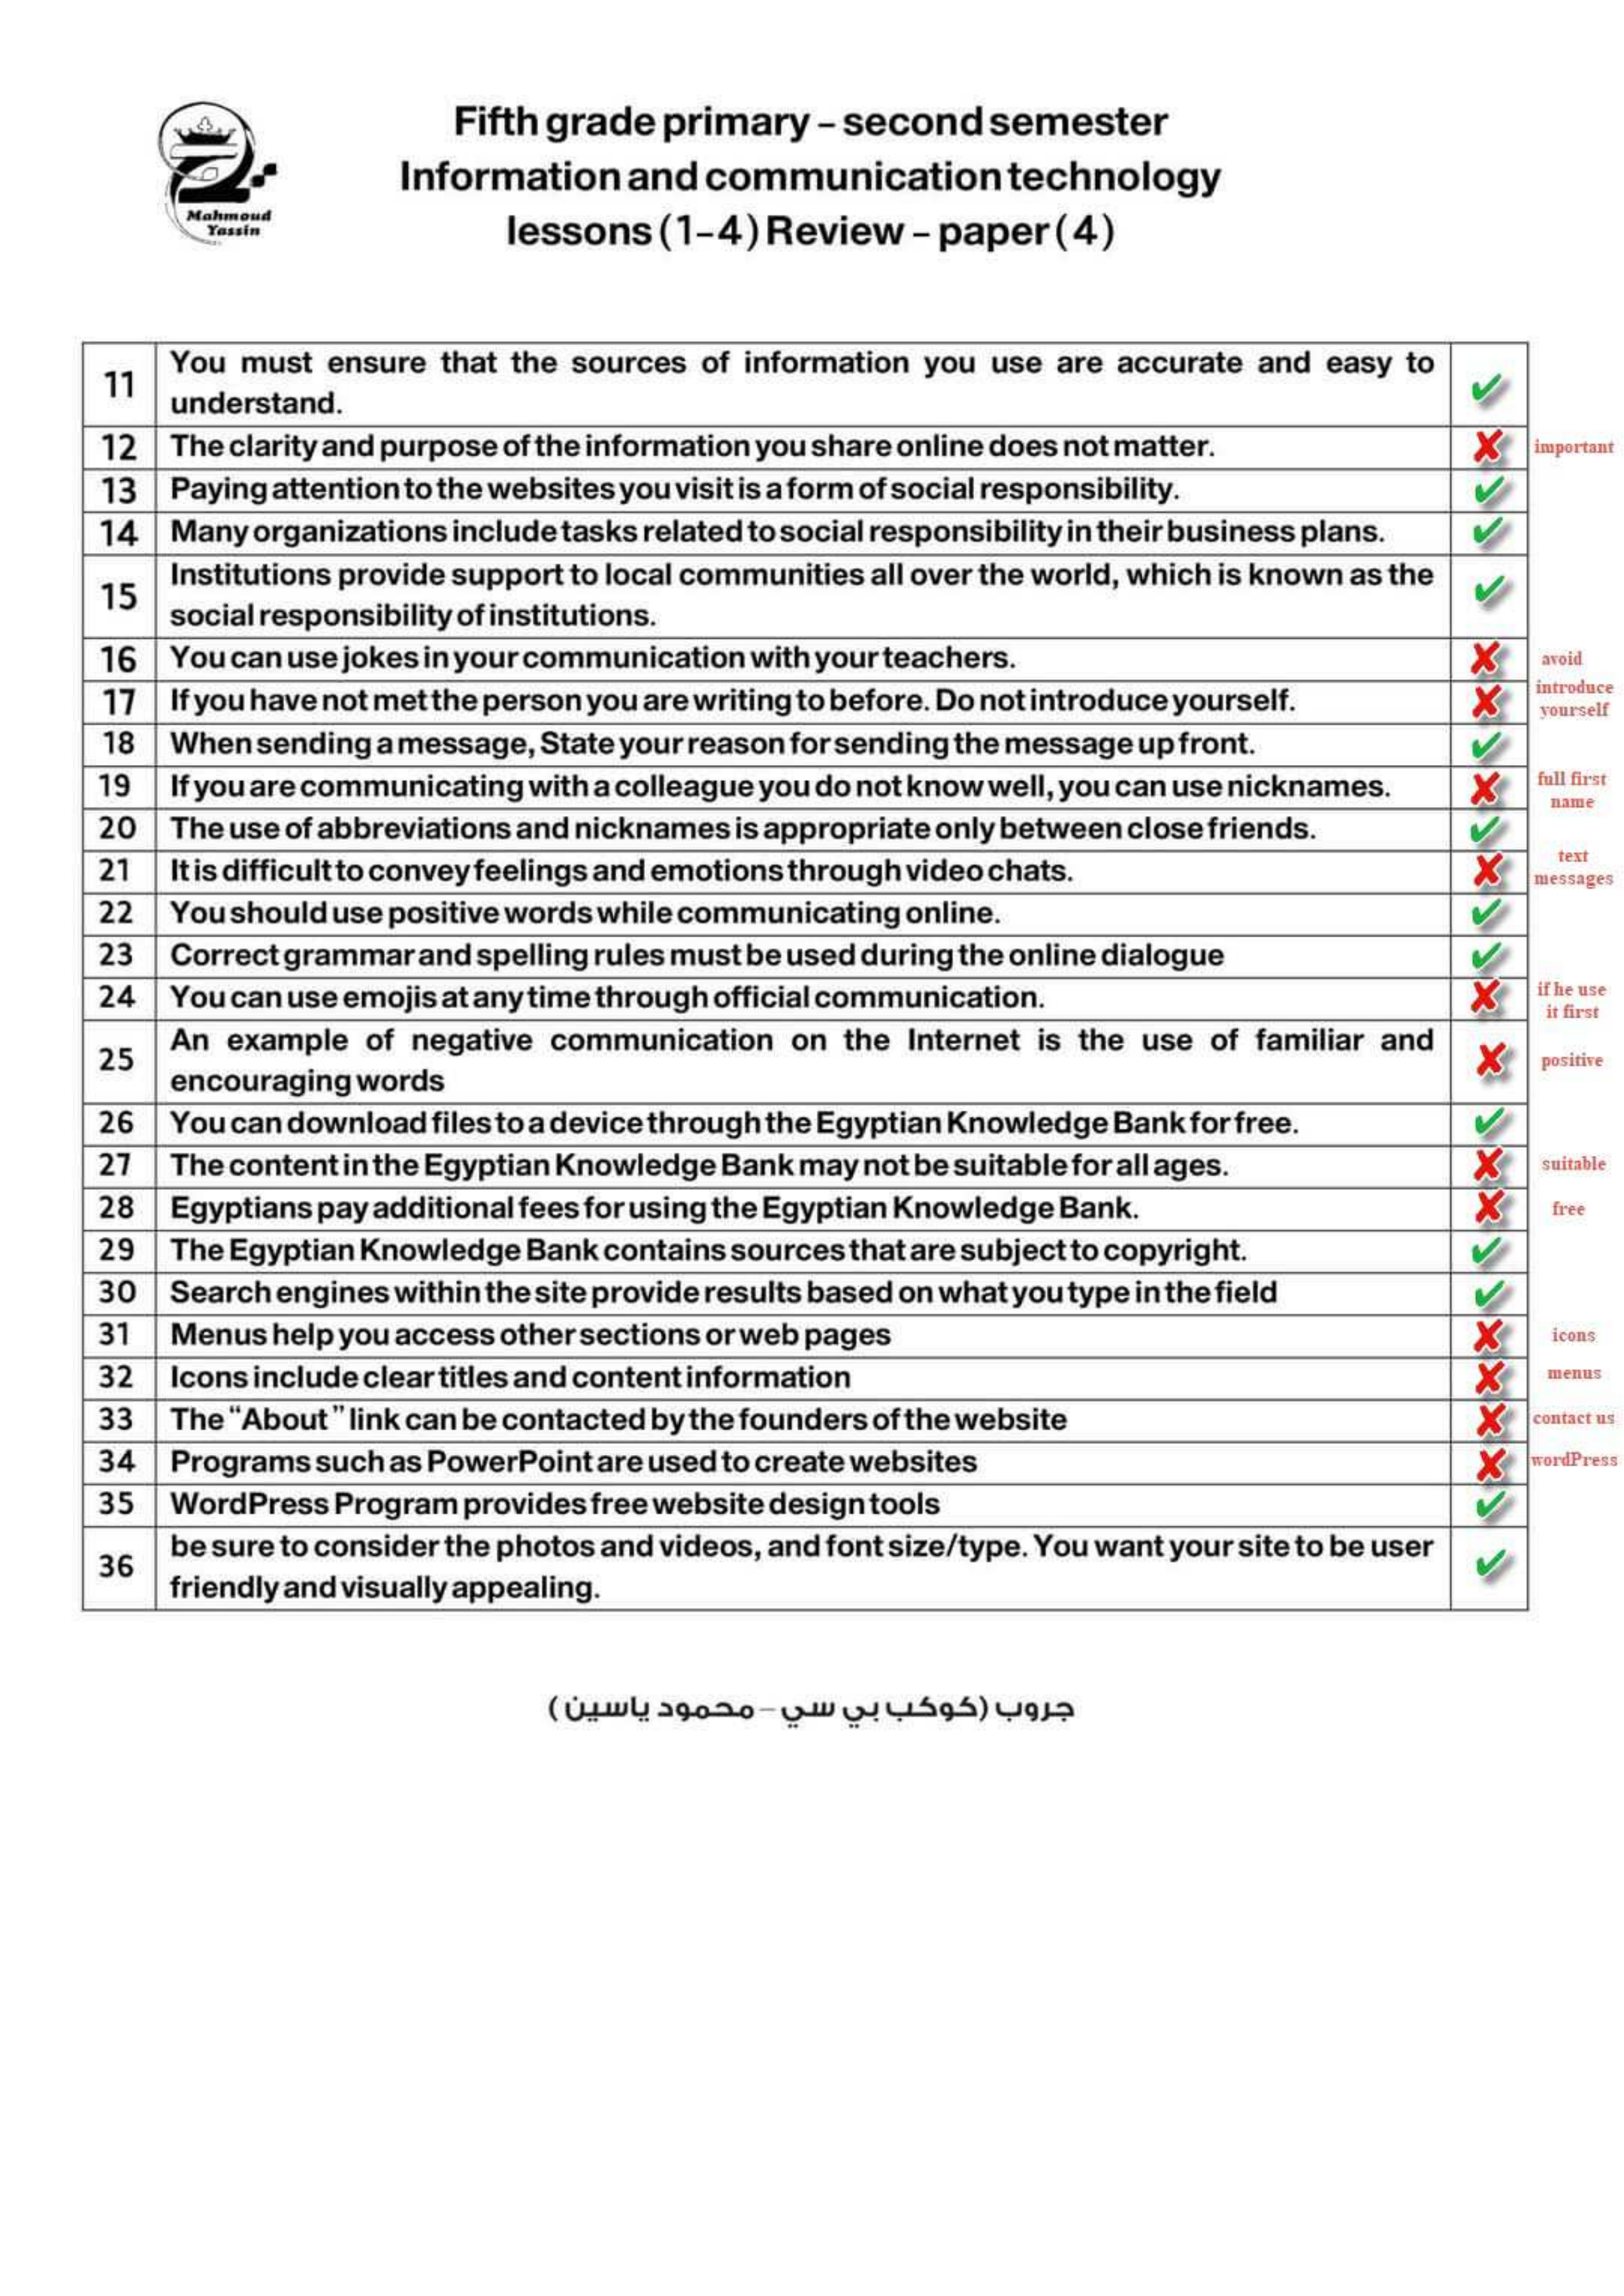 Mahmoud
Yassin
Fifth grade primary – second semester
Information and communication technology
lessons (1-4) Review – paper (4)
11 You must ensure that the sources of information you use are accurate and easy to
understand. ✔
12 The clarity and purpose of the information you share online does not matter. ✘ important
13 Paying attention to the websites you visit is a form of social responsibility. ✔
14 Many organizations include tasks related to social responsibility in their business plans. ✔
15 Institutions provide support to local communities all over the world, which is known as the
social responsibility of institutions. ✔
16 You can use jokes in your communication with your teachers. ✘ avoid
17 If you have not met the person you are writing to before. Do not introduce yourself. ✘ introduce
yourself
18 When sending a message, State your reason for sending the message up front. ✔
19 If you are communicating with a colleague you do not know well, you can use nicknames. ✘ full first
name
20 The use of abbreviations and nicknames is appropriate only between close friends. ✔
21 It is difficult to convey feelings and emotions through video chats. ✘ text
messages
22 You should use positive words while communicating online. ✔
23 Correct grammar and spelling rules must be used during the online dialogue ✔
24 You can use emojis at any time through official communication. ✘ if he use
it first
25 An example of negative communication on the Internet is the use of familiar and
encouraging words ✘ positive
26 You can download files to a device through the Egyptian Knowledge Bank for free. ✔
27 The content in the Egyptian Knowledge Bank may not be suitable for all ages. ✘ suitable
28 Egyptians pay additional fees for using the Egyptian Knowledge Bank. ✘ free
29 The Egyptian Knowledge Bank contains sources that are subject to copyright. ✔
30 Search engines within the site provide results based on what you type in the field ✔
31 Menus help you access other sections or web pages ✘ icons
32 Icons include clear titles and content information ✘ menus
33 The “About” link can be contacted by the founders of the website ✘ contact us
34 Programs such as PowerPoint are used to create websites ✘ wordPress
35 WordPress Program provides free website design tools ✔
36 be sure to consider the photos and videos, and font size/type. You want your site to be user
friendly and visually appealing. ✔
جروب (كوكب بي سي – محمود ياسين )